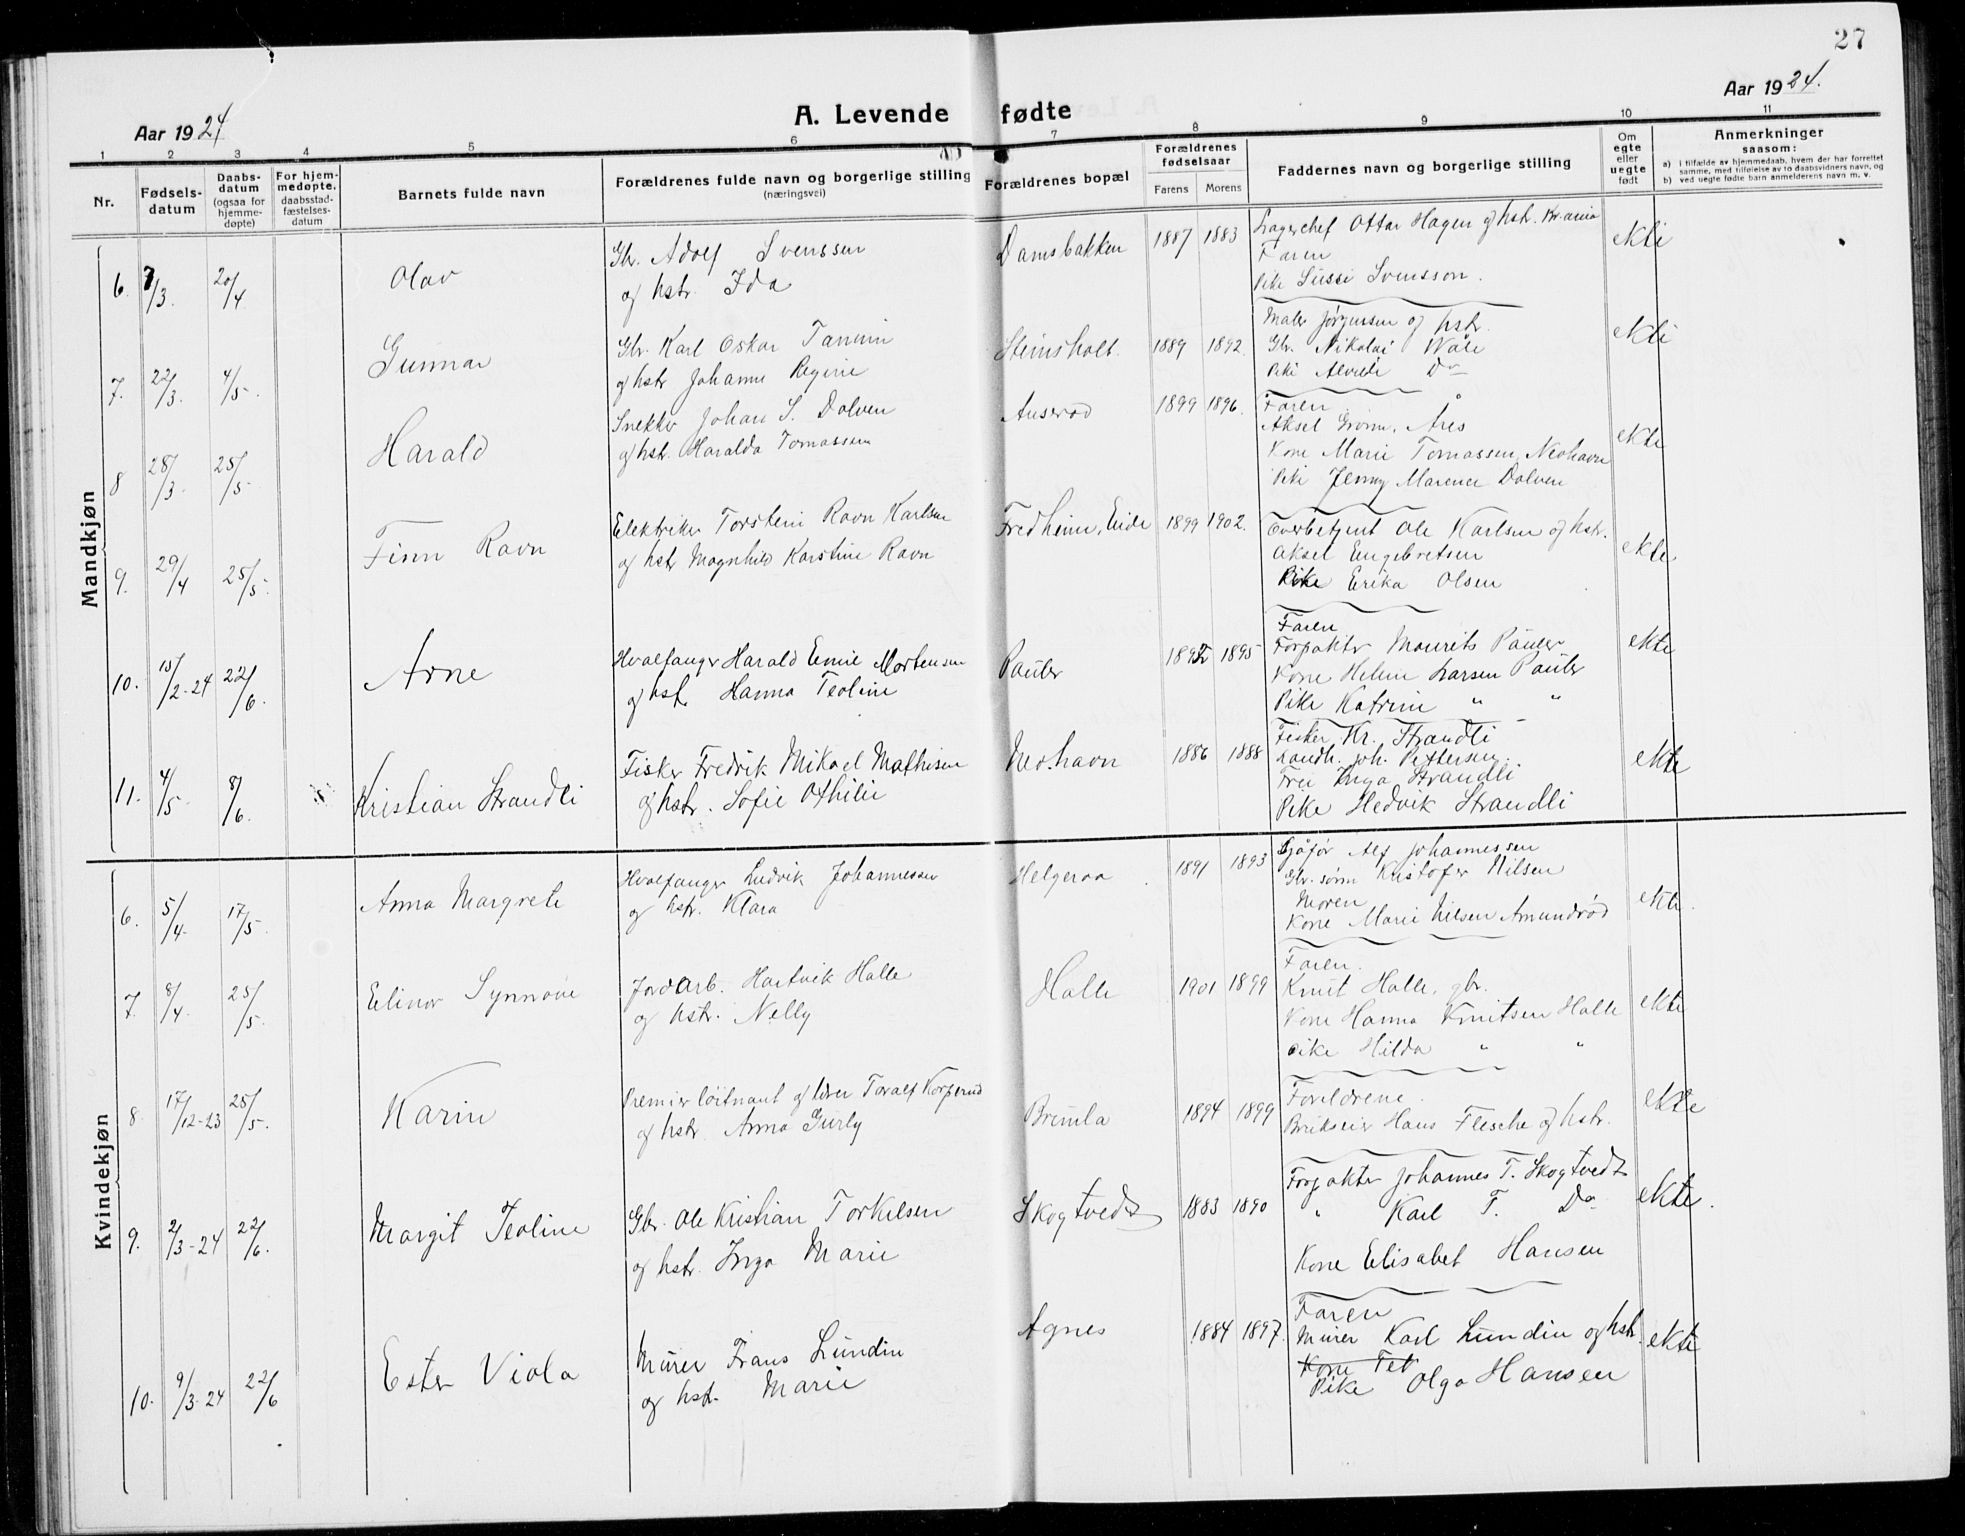 27
Aar 1924
A. Levende fødte
Aar 1924.
1 2 3 4 5 6 7 8 9 10 11
Nr.
Fødsels-
datum
Daabs-
datum
(ogsaa for
hjemme-
døpte)
For hjem-
medøpte,
daabsstad-
fæstelses-
datum
Barnets fulde navn
Forældrenes fulde navn og borgerlige stilling
(næringsvei)
Forældrenes bopæl
Forældrenes
fødselsaar
Farens Morens
Faddernes navn og borgerlige stilling
Om
egte
eller
uegte
født
Anmerkninger
saasom:
a) i tilfælde av hjemmedaab, hvem der har forrettet
samme, med tilføielse av to daabsvidners navn, og
b) ved uegte fødte barn anmelderens navn m. v.
Mandkjøn
6. 7/3. 20/4 Olav
Gbr. Adolf Svenssen
og hstr. Ida
Damsbakken 1887 1883
Lagerchef Ottar Hagen og hstr. Kr.ania
Faren
Pike Sussi Svensson.
ekte
7. 22/3. 4/5. Gunnar
Gbr. Karl Oskar Tanum
og hstr Johanne Regine
Steinsholt 1889 1892.
Maler Jørgensen og hstr.
Gbr. Nikolai Wåle
Pike Alvilde Do
ekte
8 28/3. 25/5 Harald
Snekker Johan S. Dolven
og hstr. Haralda Tomassen
Auserød 1899 1896.
Faren
Aksel Grønn, Åres
Kone Marie Tomassen, Nevlhavn
Pike Jenny Marence Dolven
ekte
9. 29/4 25/5. Finn Ravn
Elektriker Torstein Ravn Karlsen
og hstr Magnhild Karstine Ravn
Fredheim, Eide 1899 1902.
Overbetjent Ole Karlsen og hstr.
Aksel Engebretsen
Pike Erika Olsen
ekte.
10. 15/2-24 22/6. Arne
Hvalfanger Harald Emil Mortensen
og hstr Hanna Teoline
Pauler 1892 1895
Faren
Forpakter Maurits Pauler
Kone Helene Larsen Pauler
Pike Katrine " "
ekte
11. 4/5. 8/6. Kristian Strandli
Fisker Fredrik Mikael Mathisen
og hstr. Sofie Othilie
Nevlhavn 1886 1888
Fisker Kr. Strandli
Landh. Joh. Pettersen.
Fru Inga Strandli
Pike Hedvik Strandli
ekte
Kvindekjøn
6. 5/4. 17/5. Anna Margrete
Hvalfanger Ludvik Johannessen
og hstr. Klara
Helgeroa 1891 1893
Sjåfør Alf Johannessen
Gbr. sønn Kristofer Nilsen
Moren
Kone Marie Nilsen Amundrød
ekte.
7. 8/4. 25/5. Elinor Synnøve
Jordarb. Hartvik Halle
og hstr. Nelly
Halle 1901 1899
Faren.
Knut Halle, gbr.
Kone Hanna Knutsen Halle
Pike Hilda " "
ekte
8. 17/12-23 25/5. Karin
Premierløitnant og lærer Toralf Korperud
og hstr. Anna Gurly
Brunla 1894 1899
Foreldrene.
Brukseier Hans Flesche og hstr.
ekte
9. 2/3-24 22/6. Margit Teoline
Gbr. Ole Kristian Torkelsen
og hstr. Inga Marie
Skogtvedt 1883 1890
Forpakter Johannes T. Skogtvedt
" Karl T. Do
Kone Elisabet Hansen
ekte.
10. 9/3-24 22/6 Ester Viola
Murer Frans Lundin
og hstr. Marie
Agnes 1884 1897.
Faren
Murer Karl Lundin og hstr.
Kone Tet
Pike Olga Hansen
ekte